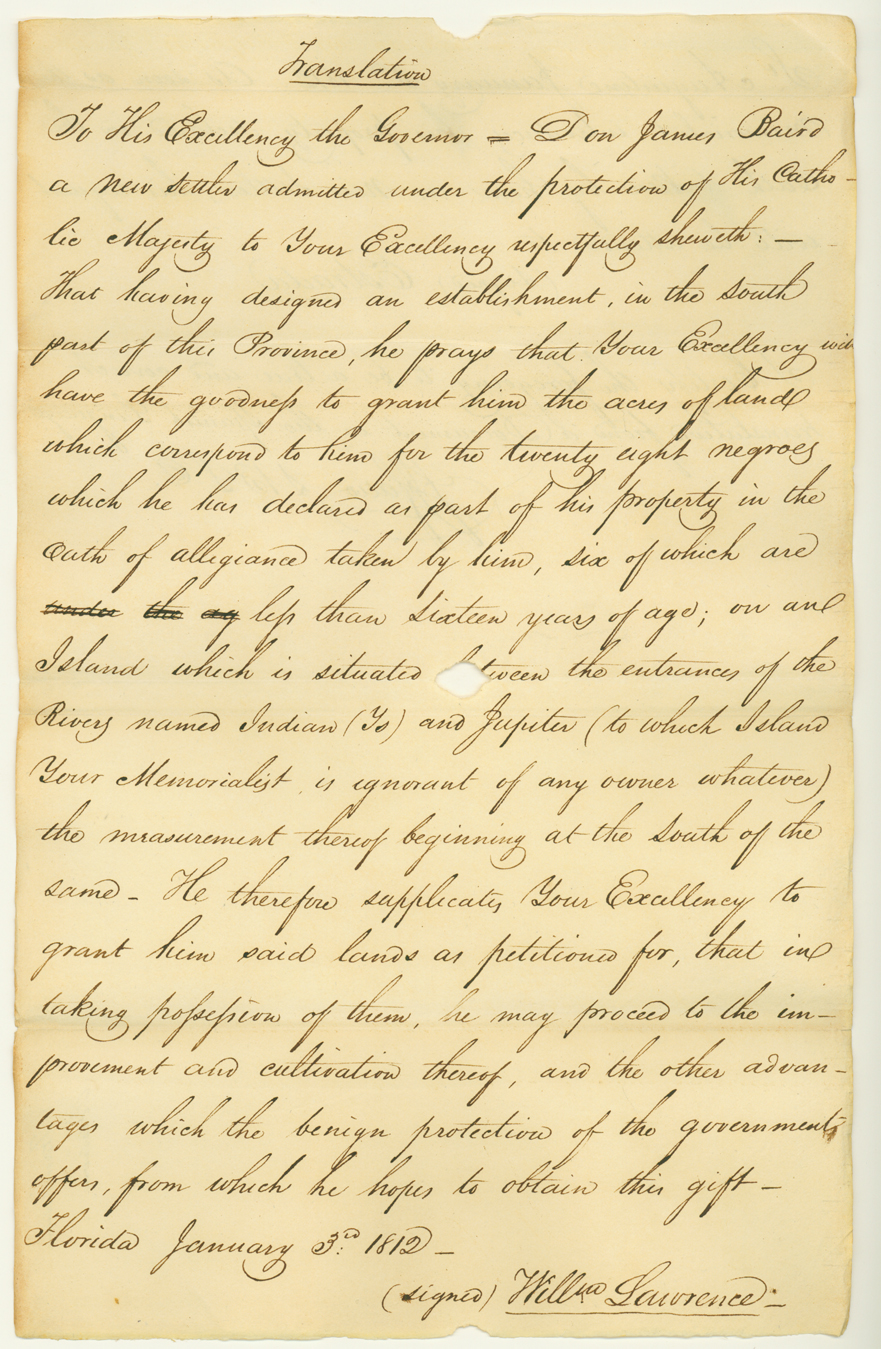 Translation
To His Excellency the Governor = Don James Baird
a new settler admitted under the protection of His Catho-
lic Majesty to Your Excellency respectfully sheweth: —
That having designed an establishment, in the South
part of this Province, he prays that Your Excellency will
have the goodness to grant him the acres of land
which correspond to him for the twenty eight negroes
which he has declared as part of his property in the
Oath of allegiance taken by him, six of which are
under the ag less than sixteen years of age; on an
Island which is situated between the entrances of the
Rivers named Indian (Ys) and Jupiter (to which Island
Your Memorialist is ignorant of any owner whatever)
the measurement thereof beginning at the South of the
same - He therefore supplicates Your Excellency to
grant him said lands as petitioned for, that in
taking possession of them, he may proceed to the im-
provement and cultivation thereof, and the other advan-
tages which the benign protection of the government
offers, from which he hopes to obtain this gift -
Florida January 3rd: 1812 -
(signed) Willm Lawrence -